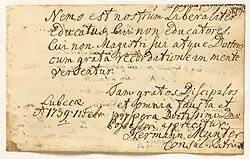 Nemo est nostrum Liberaliter
Educatus, Cui non Educatores,
Cui non Magistri sui atque Doctores
cum grata recordatione in mente
versentur.
Lubecæ
A 1739
Discipulos
et omnia fausta et
prospera
apprecatur
Hermann Münter